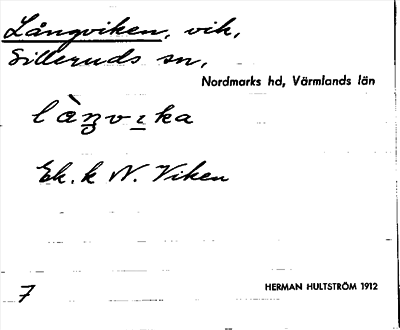 Långviken, vik,
Silleruds sn,
Nordmarks hd, Värmlands län
Ek. k N. Viken
7
HERMAN HULTSTRÖM 1912